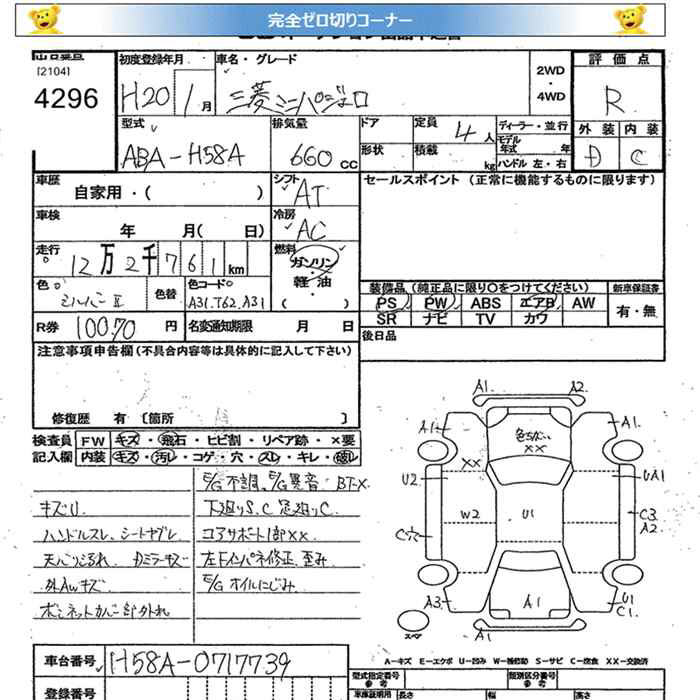 完全ゼロ切りコーナー
[2104]
4296
初度登録年月
H20 1月
車名・グレード
三菱ミニパジェロ
2WD
・
4WD
評価点
R
外装 内装
D C
型式
ABA-H58A
排気量
660 CC
ドア
形状
定員 4人
積載 kg
ディーラー・並行
モデル年式 年
ハンドル 左・右
車歴
自家用・( )
シフト
AT
セールスポイント (正常に機能するものに限ります)
車検
年 月( 日)
冷房
AC
走行
12万2千761km
燃料
ガソリン
・
軽油
・
( )
色
シルバーII
色替
色コード
A31.T62.A31
装備品(純正品に限り〇をつけてください)
PS PW ABS エアB AW
SR ナビ TV カワ
新車保証書
有・無
R券 10070 円
名変通知期限 月 日
後日品
注意事項申告欄(不具合内容等は具体的に記入して下さい)
修復歴 有 [箇所 ]
検査員 FW キズ・飛石・ヒビ割・リペア跡・×要
記入欄 内装 キズ・汚レ・コゲ・穴・スレ・キレ・破レ
E/G不調、E/G異音 BT-X
キズU
下廻りS.C 足廻りC
ハンドルスレ、シート
コアサポート1部XX
Dミラーキズ
左Fインパネ修正、歪み
外AWキズ
E/Gオイルにじみ
ボンネットカバー部外れ
A1 A2
A1 A1
色ちがい
XX
XX
U2 UA1
W2 U1 C3
A2
C穴
A3 A1 U1
C1
スペア
A1
A-キズ E-エクボ U-凹み W-補修跡 S-サビ C-腐食 XX-交換済
車台番号 H58A-0717739
登録番号
型式指定番号
参考
類別区分番号
参考
車庫証明用
長さ 幅 高さ